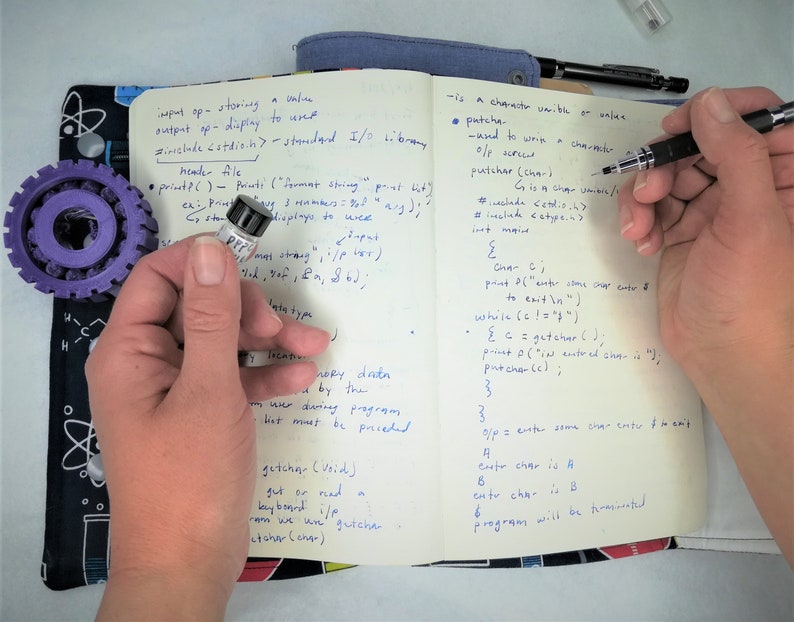 input op - storing a value
output op - display to user
#include <stdio.h> - standard I/O Library
header file
• printf() - printf ("format string" print list)
ex: printf ("avg 3 numbers = %f " avg);
displays to user
input
mat string", i/p list)
%d, %f, &a, &b);
data type
y location
mory data
by the
user during program
list must be preceded
getchar (void)
get or read a
keyboard i/p
am we use getchar
getchar (char)
- is a character varible or value
• putchar
- used to write a character
o/p screen
putchar (char)
is a char varible/
# include <stdio.h>
# include <ctype.h>
int main
{
char c ;
print f ("enter some char enter $
to exit \n")
while (c != "$")
{ c = getchar ( );
print f ("in entered char is ");
putchar (c) ;
}
}
}
o/p = enter some char enter $ to exit
A
enter char is A
B
enter char is B
$
program will be terminated